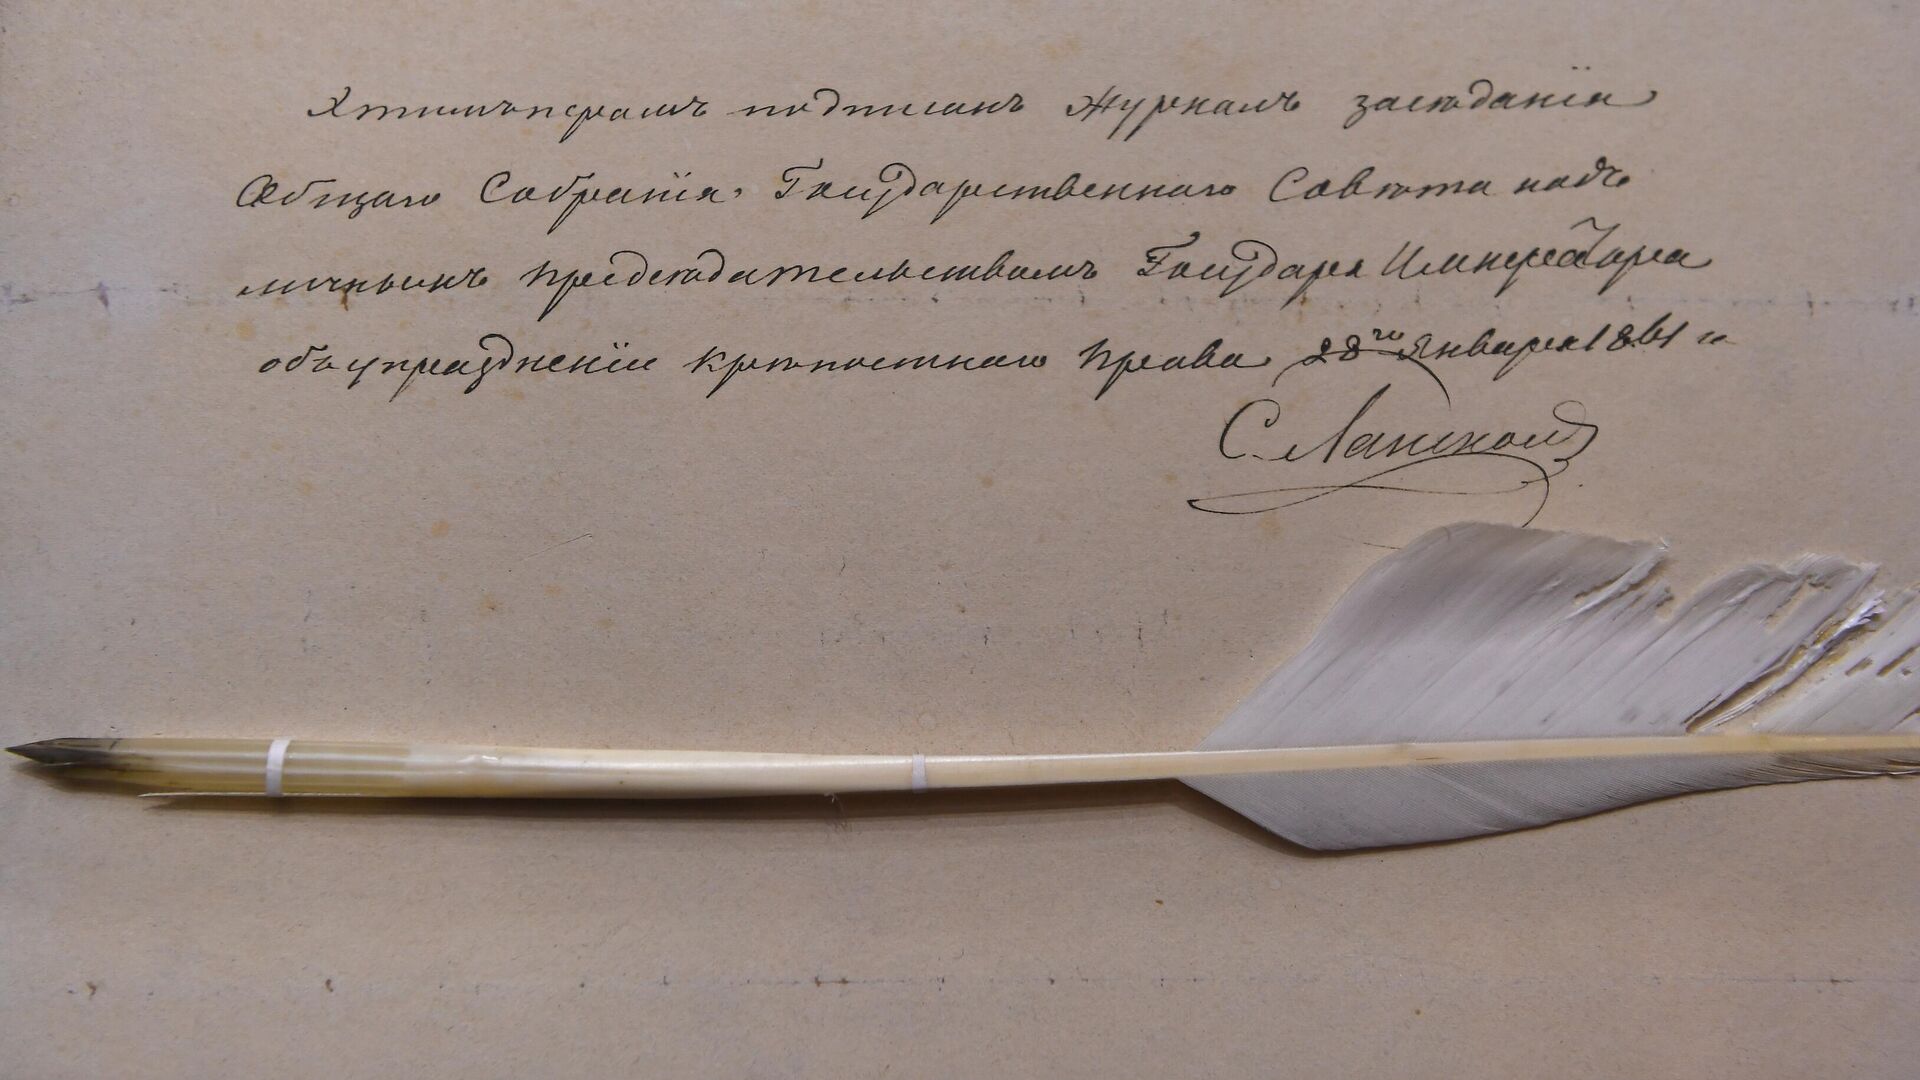 Этимъ перомъ подписанъ Журналъ засѣданія
Общаго Собранія Государственнаго Совѣта подъ
личнымъ предсѣдательствомъ Государя Императора
объ упраздненіи крѣпостнаго права 28го Января 1861 г.
С. Ланской